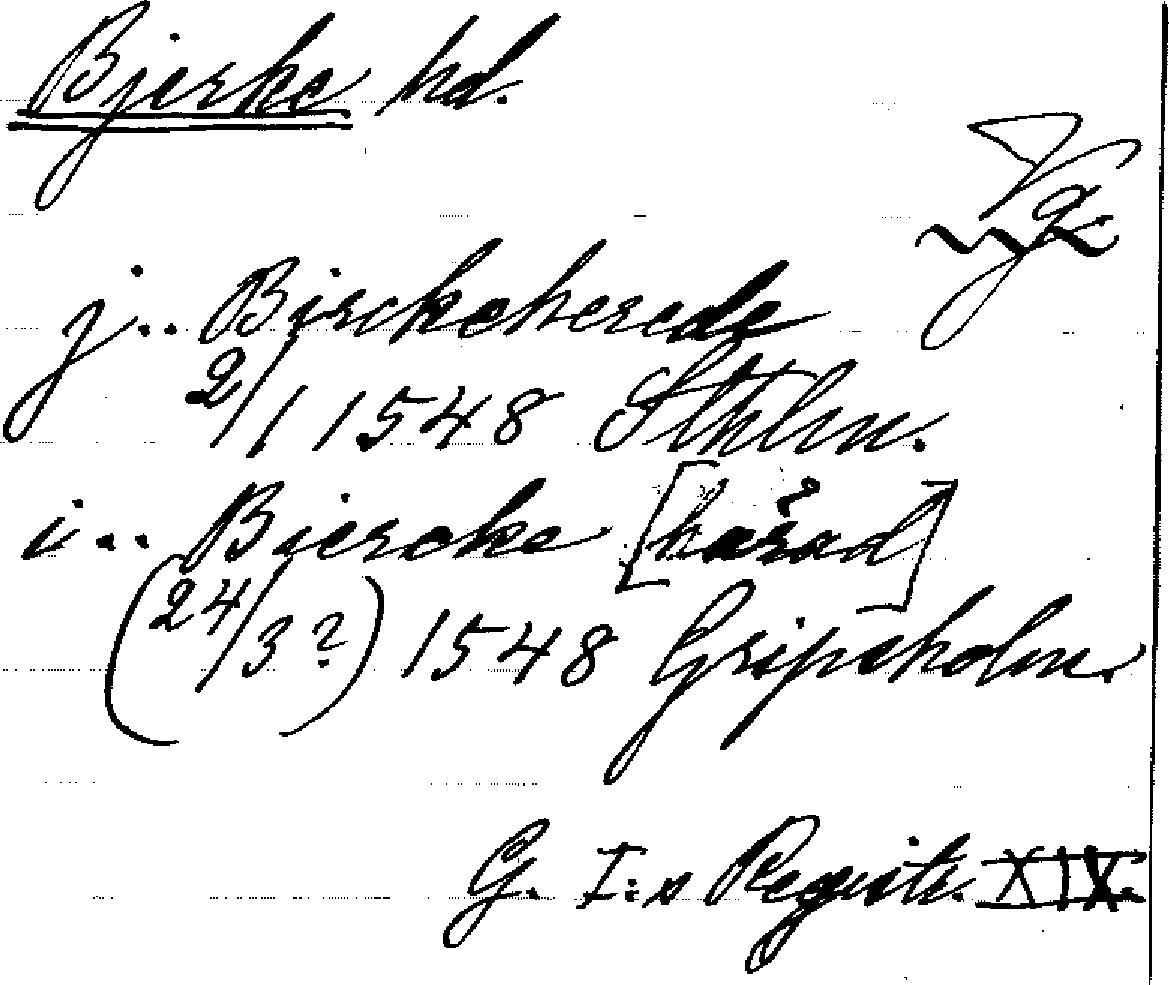 Bjerke hd.
Vg.
j.. Birckeherede
2/1 1548 Sthlm.
i.. Biercke [härad]
(24/3 ?) 1548 Gripsholm.
G. I:s Registr. XIX.